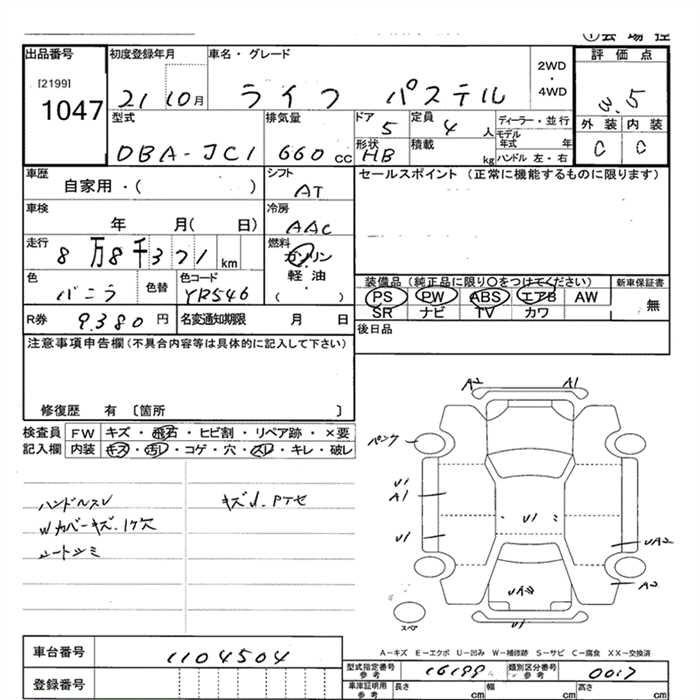 出品番号 初度登録年月 車名・グレード 2WD・4WD 評価点
[2199]
1047 21 10月 ライフ パステル 3.5
型式 排気量 ドア 定員 ディーラー・並行 外装 内装
DBA-JC1 660cc 5 4人 モデル年式 年 C C
形状 HB 積載 kg ハンドル 左・右
車歴 自家用・( ) シフト AT セールスポイント (正常に機能するものに限ります)
車検 年 月( 日) 冷房 AAC
走行 8万8千371km 燃料 ガソリン
軽油
( )
色 バニラ 色替 色コード YR546
装備品(純正品に限り○をつけてください) 新車保証書
PS PW ABS エアB AW 無
SR ナビ TV カワ
R券 9.380円 名変通知期限 月 日 後日品
注意事項申告欄(不具合内容等は具体的に記入して下さい)
修復歴 有 〔箇所 〕
検査員 FW キズ・飛石・ヒビ割・リペア跡・×要
記入欄 内装 キズ・汚レ・コゲ・穴・スレ・キレ・破レ
ハンドルスレ
Wカバーキズ.
シートシミ
A2 A1
パンク
U1
A1
U1 U1
UA2
A2
U1
スペア
A-キズ E-エクボ U-凹み W-補修跡 S-サビ C-腐食 XX-交換済
車台番号 1104504
型式指定番号 参考 16199 類別区分番号 参考 0017
登録番号
車庫証明用 参考 長さ cm 幅 cm 高さ cm